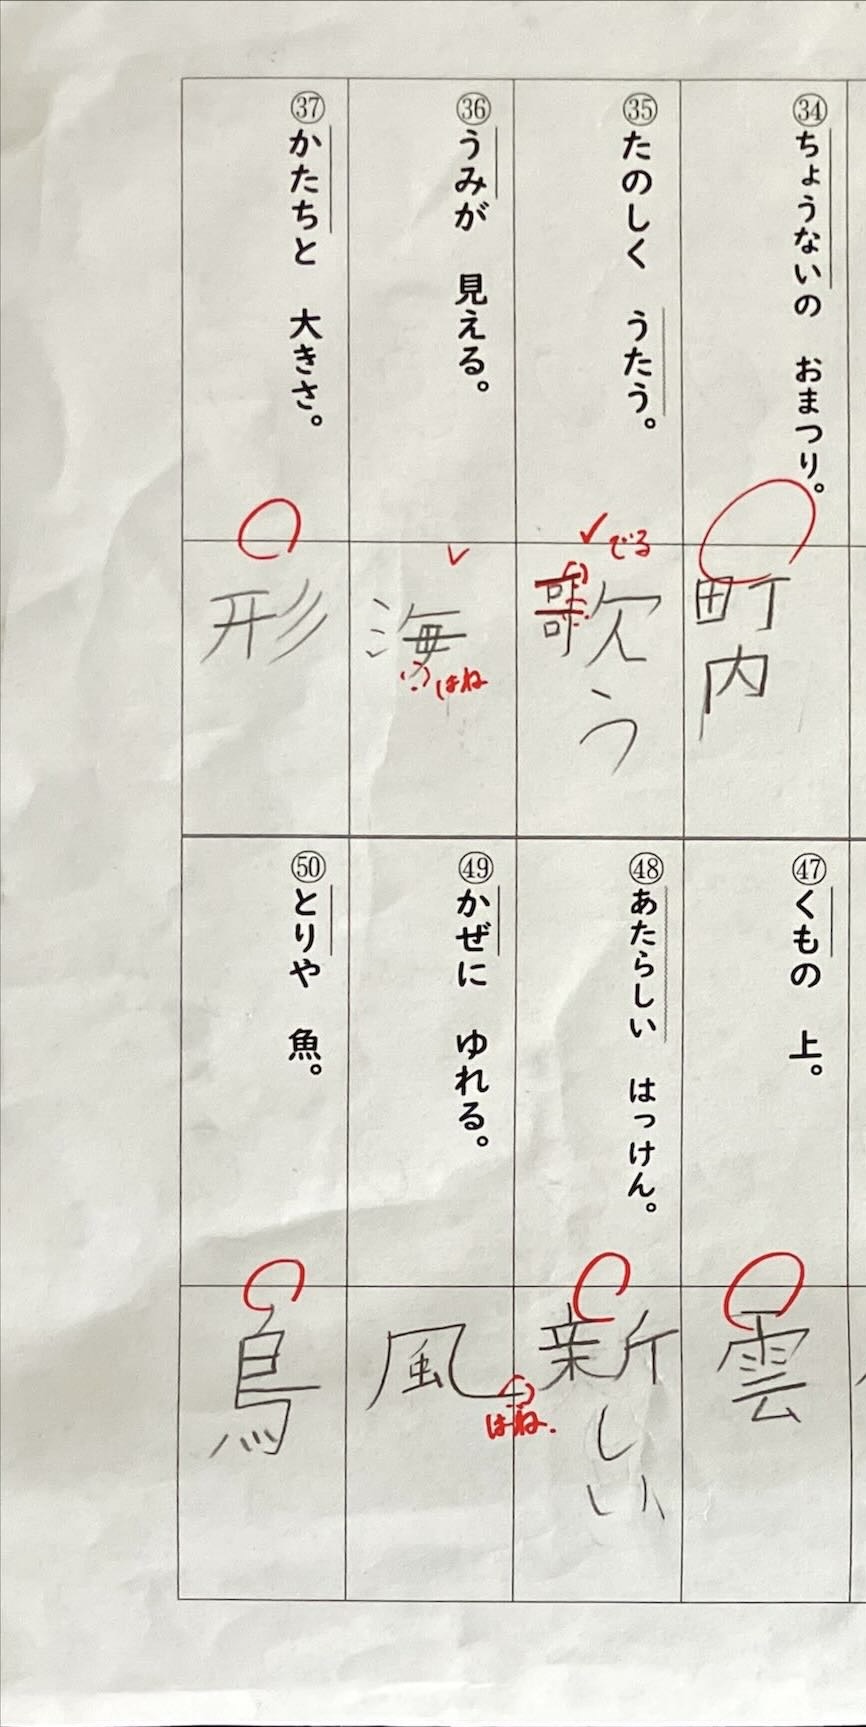 ㉞ちょうないの おまつり。
町内
㉟たのしく うたう。
でる
歌う
㊱うみが 見える。
海
はね
㊲かたちと 大きさ。
形
㊼くもの 上。
雲
㊽あたらしい はっけん。
新しい
㊾かぜに ゆれる。
風
はね.
㊿とりや 魚。
鳥